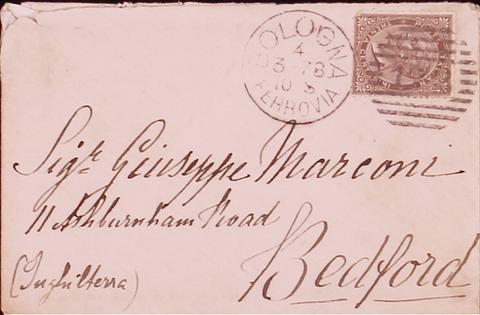 BOLOGNA
4
3 78
10 S
FERROVIA
Sigr. Giuseppe Marconi
11 Ashburnham Road
Bedford
(Inghilterra)